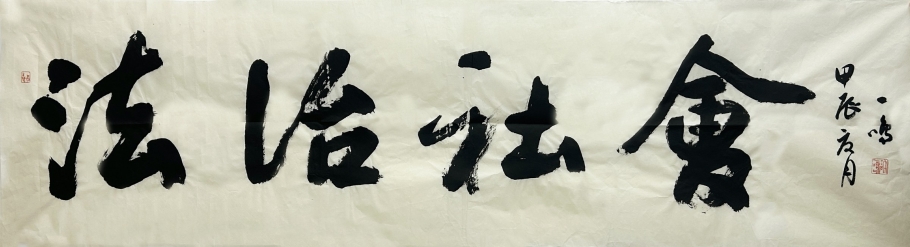 法治社會
甲辰夏月
一鳴